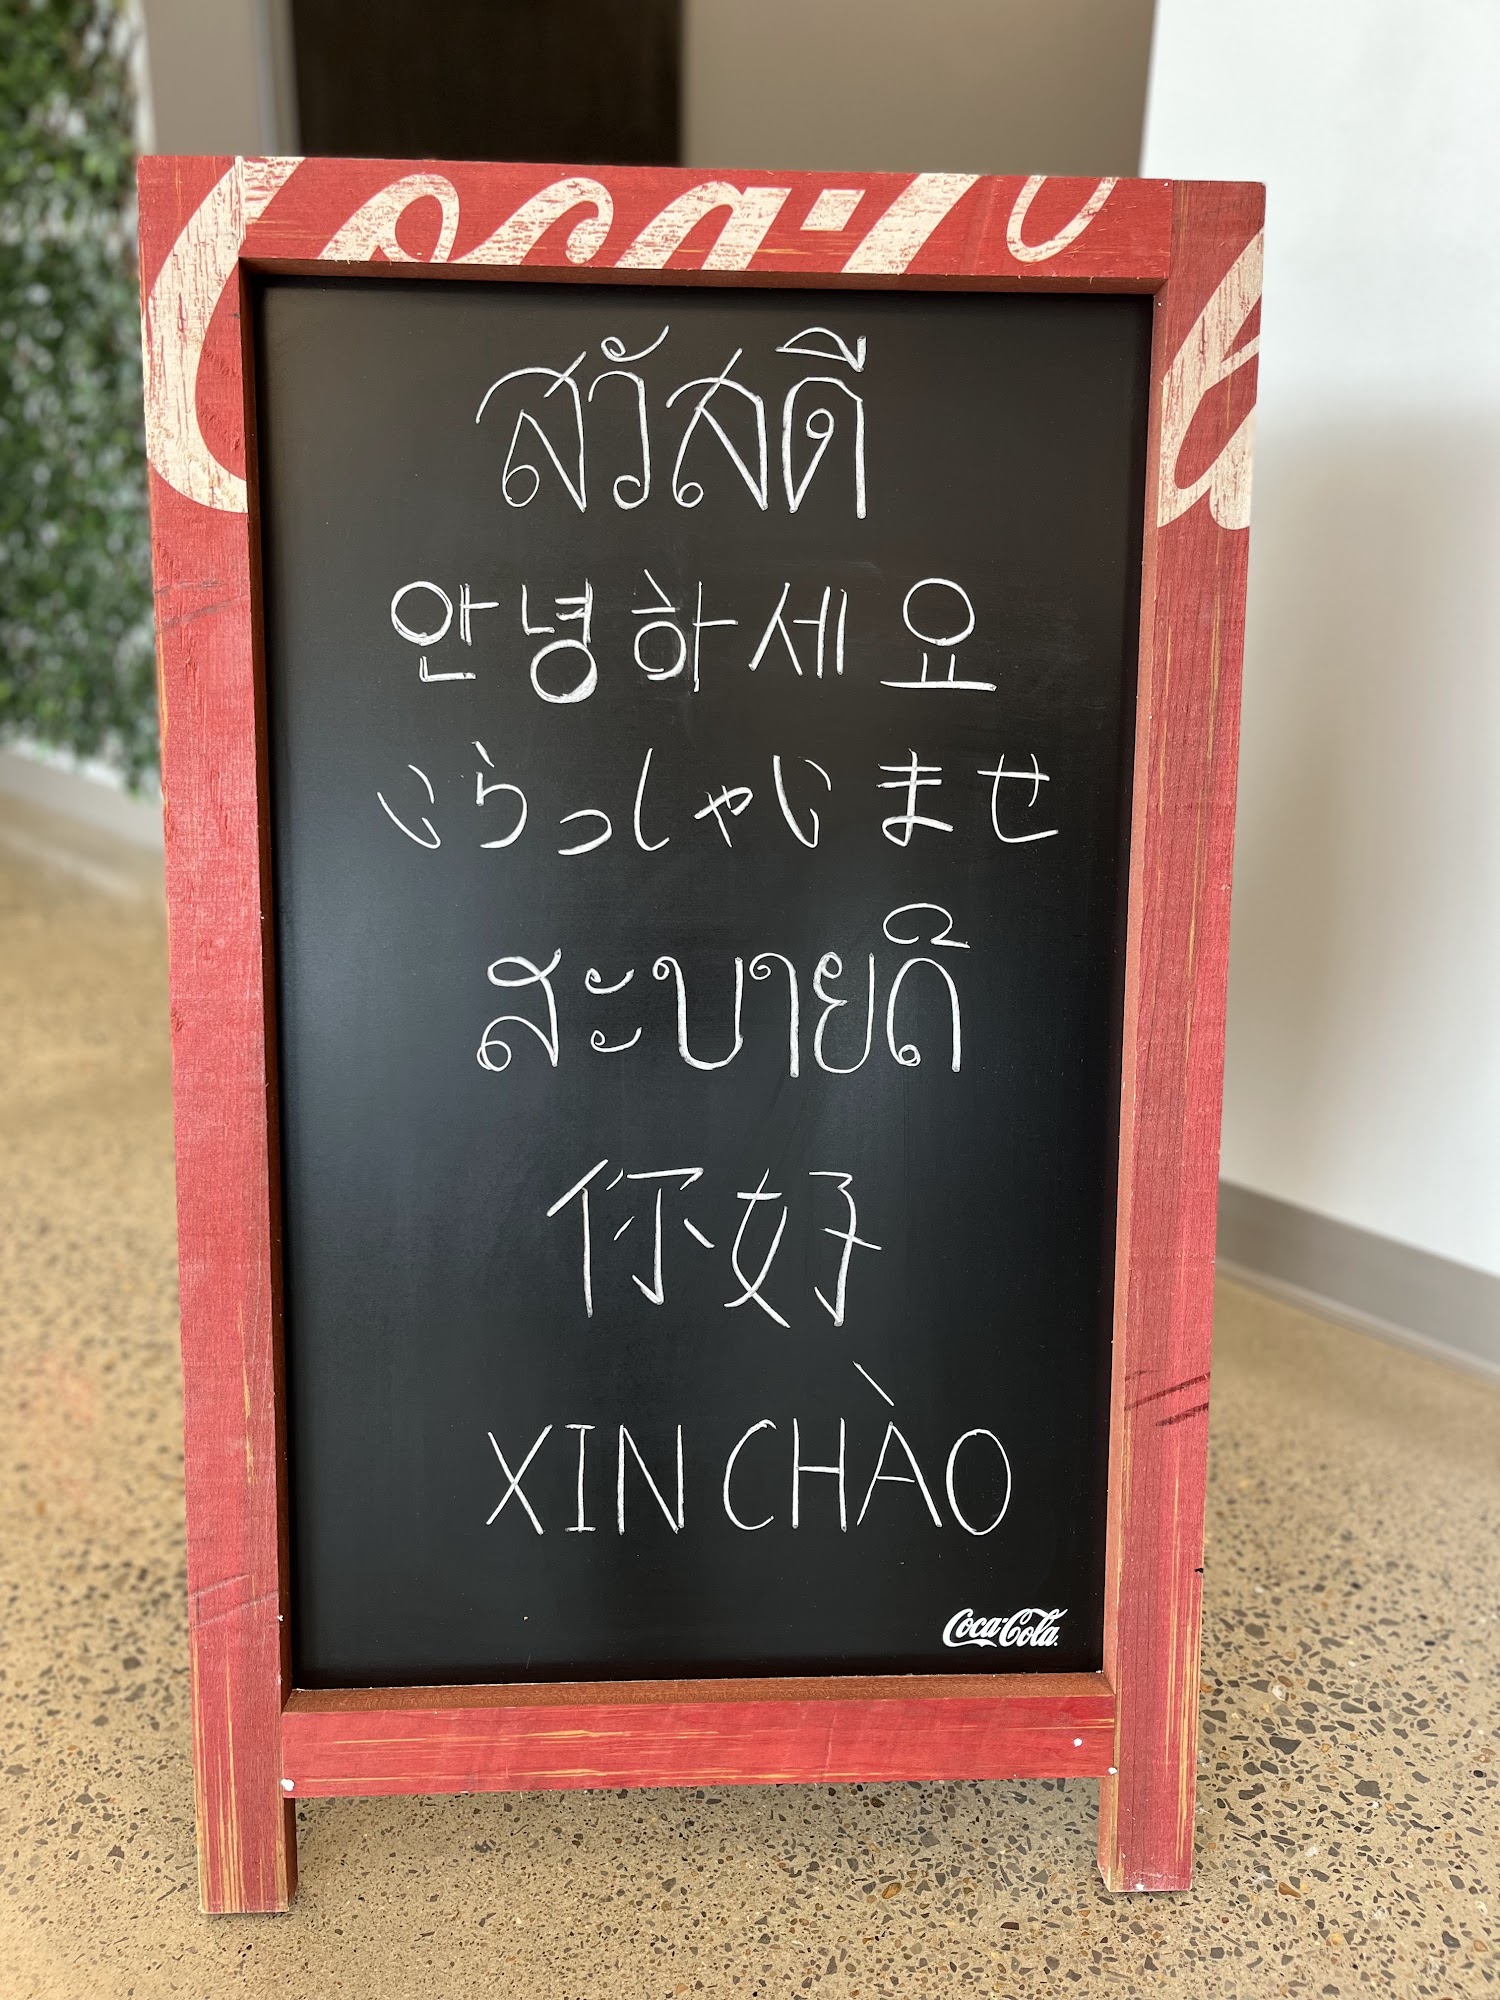 Coca-Co
สวัสดี
안녕하세요
いらっしゃいませ
ສະບາຍດີ
你好
XIN CHÀO
Coca-Cola